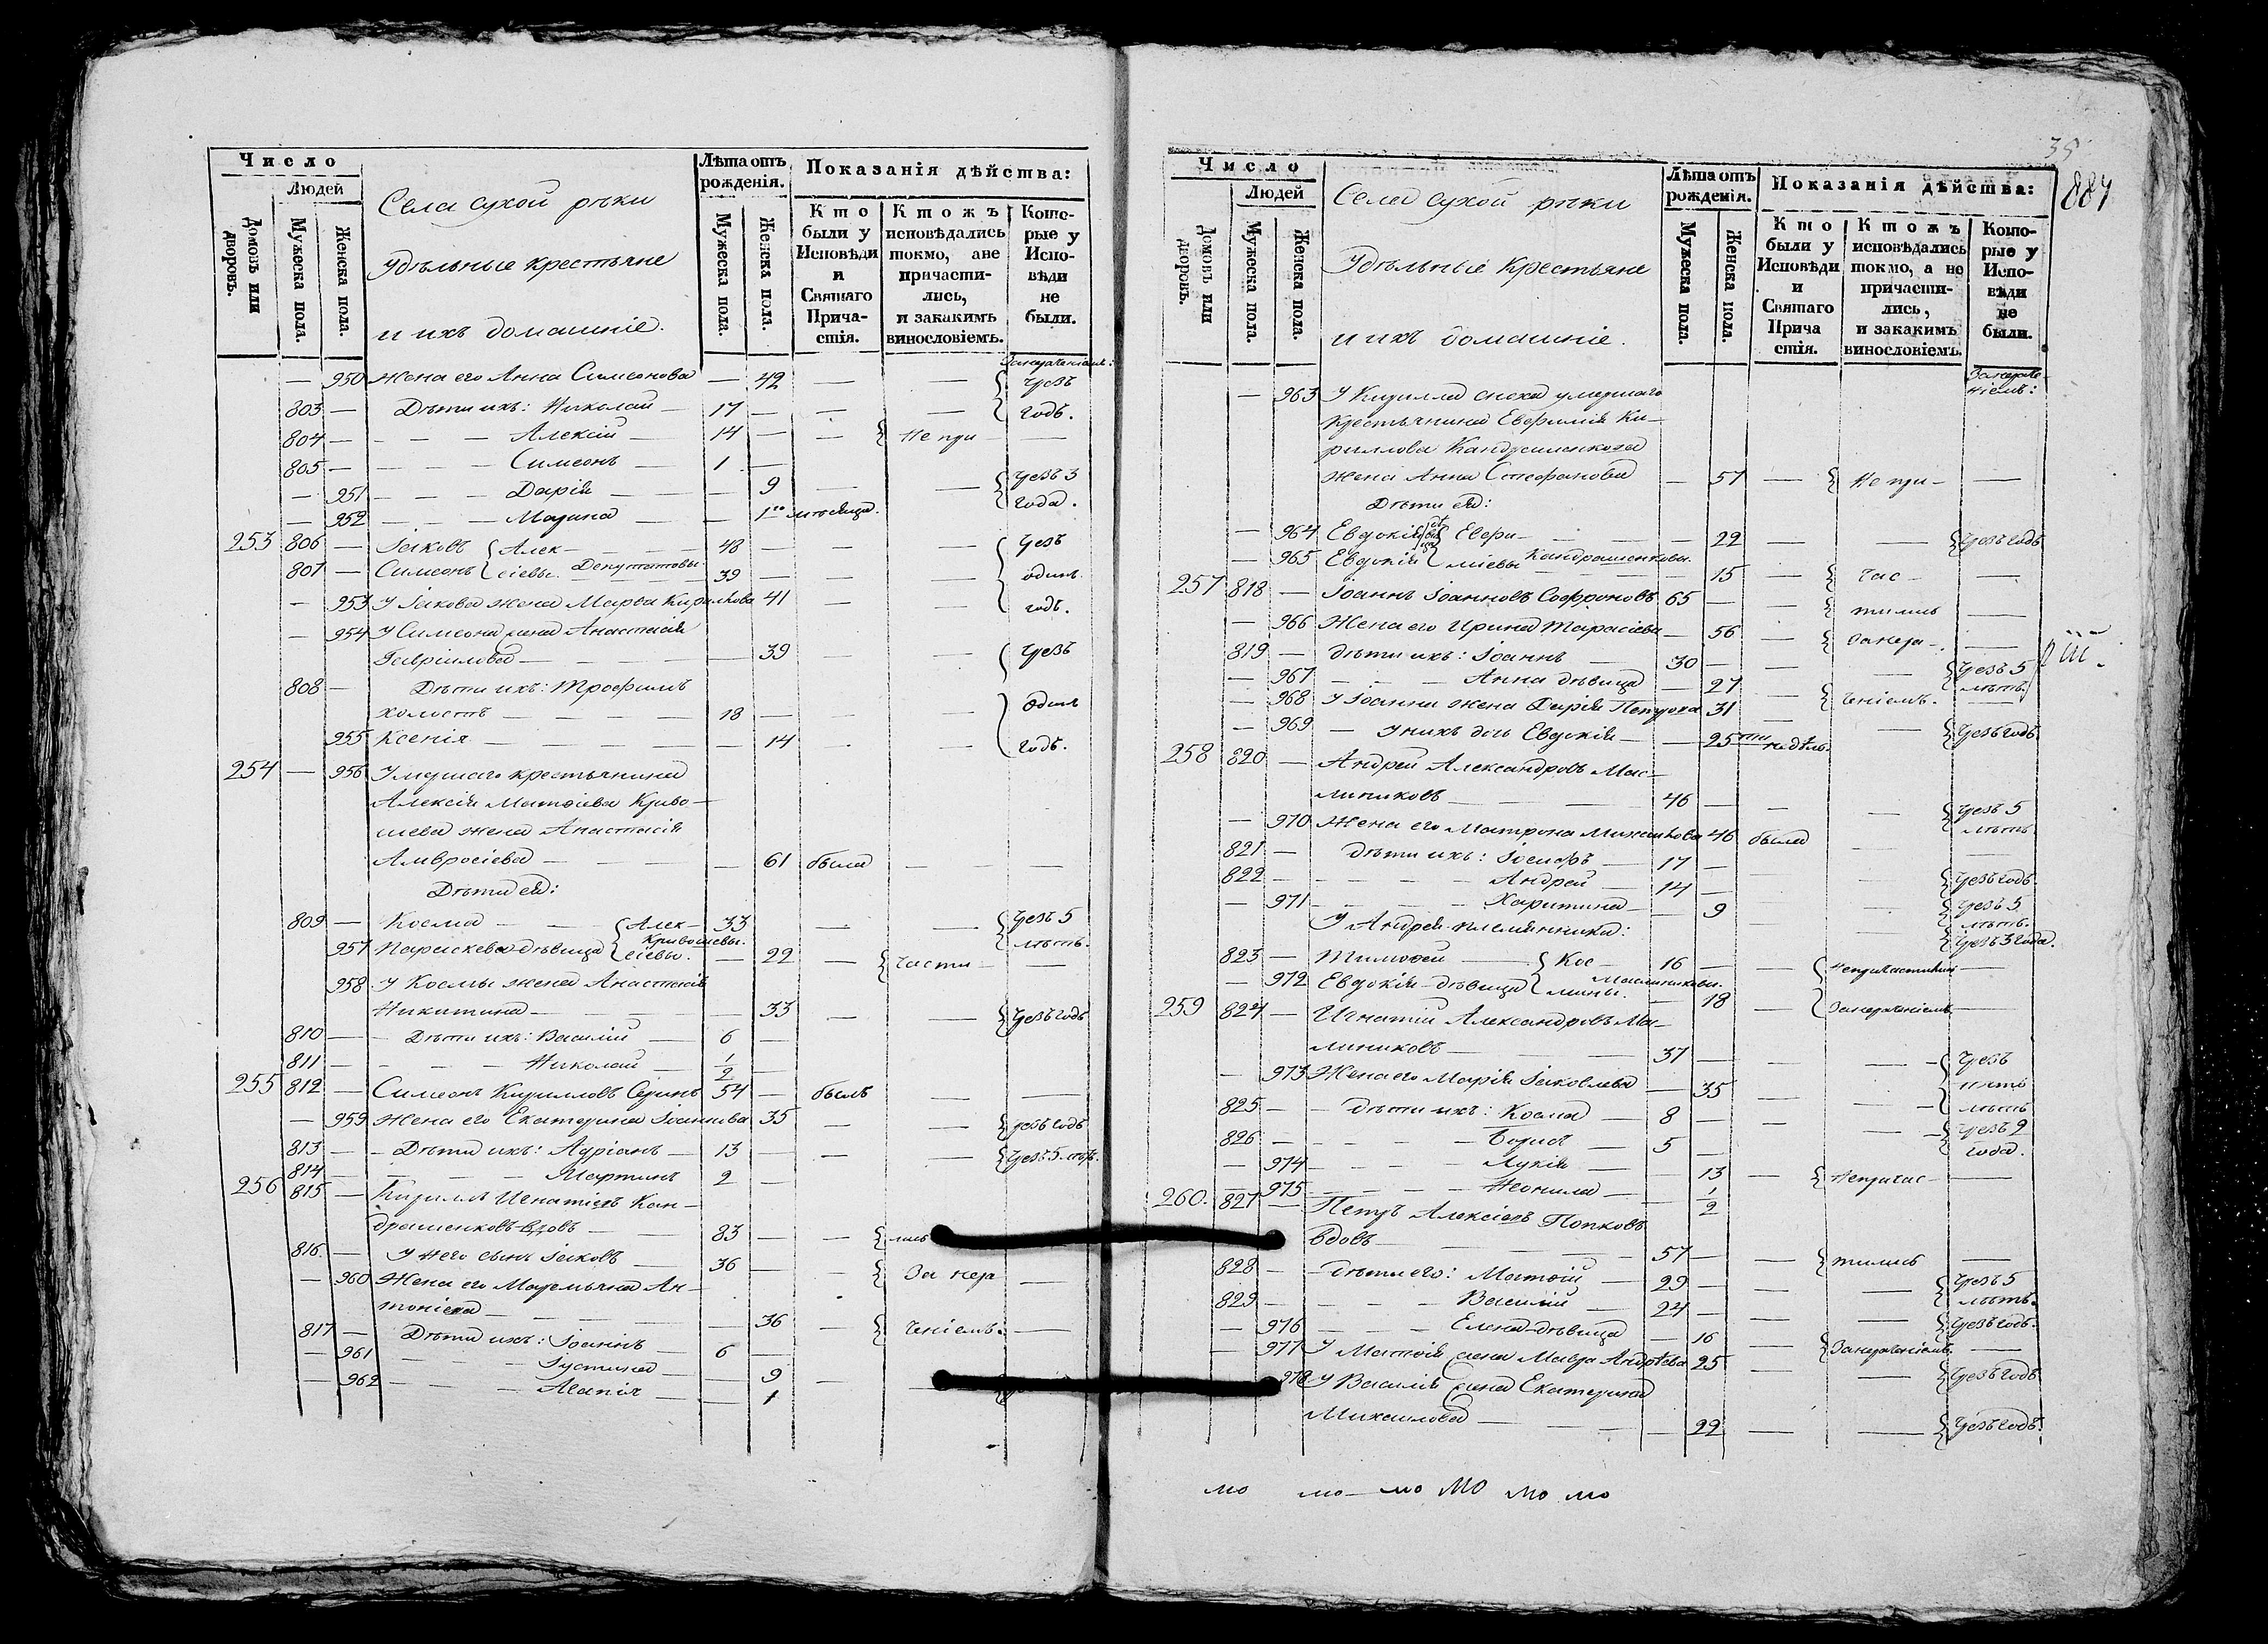 Число
Людей
Домовъ или дворовъ.
Мужеска пола.
Женска пола.
Села Сухой рѣки
удѣльные крестьяне
и ихъ домашніе.
Лѣта отъ рожденія.
Мужеска пола.
Женска пола.
Показанія дѣйства:
Кто были у Исповѣди и Святаго Причастія.
Ктожъ исповѣдались токмо, ане причастились, и закакимъ винословіемъ.
Которые у Исповѣди не были.
— 950 Жена его Анна Симеонова — 42 — — чрезъ
803 — Дѣти ихъ: Николай — 17 — — — годъ.
804 — — — — Алексій — 14 — — Не при — —
805 — — — — Симеонъ — 1 —
— 951 — — — Дарія — — 9 — — чрезъ 3
— 952 — — — Марина — — 1 мѣсяца. года.
253 806 — Іаковъ Алек— — 48 — — — чрезъ
807 — Симеонъ сіевы. Депутатовы. 39 — — — одинъ
— 953 У Іакова жена Марѳа Кирилова 41 — — годъ.
— 954 У Симеона жена Анастасія
Гавріилова — — 39 — — чрезъ
808 — Дѣти ихъ: Трофимъ
холостъ — — 18 — — — одинъ
955 Ксенія — — — 14 — — годъ.
254 — 956 Умершаго крестьянина
Алексія Матѳіева Криво—
шеева жена Анастасія
Амвросіева — — 61 была — —
Дѣти ея:
809 — Косма — — Алек— 33 — — чрезъ 5
957 Параскева дѣвица сіевы. Кривошеевы. — 22 — части — — лѣтъ.
958 У Космы жена Анастасія
Никитина — — 33 — — чрезъ годъ
810 — — Дѣти ихъ: Василій — 6 —
811 — — — — Николай — 1/2 —
255 812 — Симеонъ Кирилловъ 54 — былъ — —
— 959 Жена его Екатерина Іоаннова 35 — — чрезъ годъ
813 — — Дѣти ихъ: Адріанъ — 13 — — — чрезъ 5 лѣтъ.
814 — — — — Мартинъ 2 —
256 815 — Кириллъ Игнатіевъ Кан—
драшенковъ вдовъ — 83 — — лись
816 — У него сынъ Іаковъ — 36 — — За нера —
— 960 Жена его Маремьяна Ан—
тоніева — — 36 — ченіемъ. —
817 — Дѣти ихъ: Іоаннъ — 6 —
— 961 — — — Іустина — — 9 —
— 962 — — — Агапія — — 1
35
887
Число
Людей
Домовъ или дворовъ.
Мужеска пола.
Женска пола.
Села Сухой рѣки
Удѣльные Крестьяне
и ихъ домашніе.
Лѣта отъ рожденія.
Мужеска пола.
Женска пола.
Показанія дѣйства:
Кто были у Исповѣди и Святаго Прича стія.
Ктожъ исповѣдались токмо, а не причастились, и закакимъ винословіемъ.
Которые у Исповѣди не были.
— 963 У Кирилла сноха умершаго
крестьянина Евфимія Ки—
риллова Кандрашенкова
жена Анна Стефанова — 57 — Не при— —
Дѣти ея:
— 964 Евдокія Евфи— — 22 — — чрезъ годъ
— 965 Евдокія міевы Кандрашенковы. 15 — час— —
257 818 — Іоаннъ Іоанновъ Софроновъ 65 — — тились —
— 966 Жена его Ирина Тарасіева — 56 — за нера— —
819 — дѣти ихъ: Іоаннъ 30 — — — чрезъ 5
— 967 — — — Анна дѣвица — 27 — лѣтъ.
— 968 У Іоанна жена Дарія Петрова 31 — ченіемъ. —
— 969 — У нихъ дочь Евдокія — — 25 недѣль. — чрезъ годъ.
258 820 — Андрей Александровъ Мас—
линиковъ — — 46 — — — чрезъ 5
— 970 Жена его Матрона Михайлова 46 была — лѣтъ
821 — дѣти ихъ: Іосифъ — 17 —
822 — — — — Андрей — 14 — чрезъ годъ.
— 971 — — — Харитина — 9 — чрезъ 5 лѣтъ.
У Андрея племянники: чрезъ 3 года.
823 — Тимоѳей — Кос— 16 — — Непричастились —
— 972 Евдокія дѣвица мины. Маслиниковы. — 18 за нераченіемъ —
259 824 — Игнатій Александровъ Ма—
линиковъ — — 37 — — — чрезъ
— 973 Жена его Марія Іаковлева — 35 — — пять
825 — — дѣти ихъ: Косма — 8 — — — лѣтъ
826 — — — — Борисъ — 5 — — чрезъ 2
— 974 — — — Лукія — — 13 — года.
— 975 — — — Неонила — — 1/2 Непричас— —
260. 827 — Петръ Алексіевъ Попковъ
вдовъ — — 57 — — тились —
828 — — дѣти его: Матѳій — 29 — — — чрезъ 5
829 — — — — Василій — 24 — — лѣтъ.
— 976 — — — Елена дѣвица — 16 — — чрезъ годъ.
— 977 У Матѳія жена Мавра Андрѣева 25 — за нераченіемъ. —
978 У Василія жена Екатерина — чрезъ годъ.
Михаилова — — — 22 — — чрезъ годъ.
мо мо мо мо мо мо